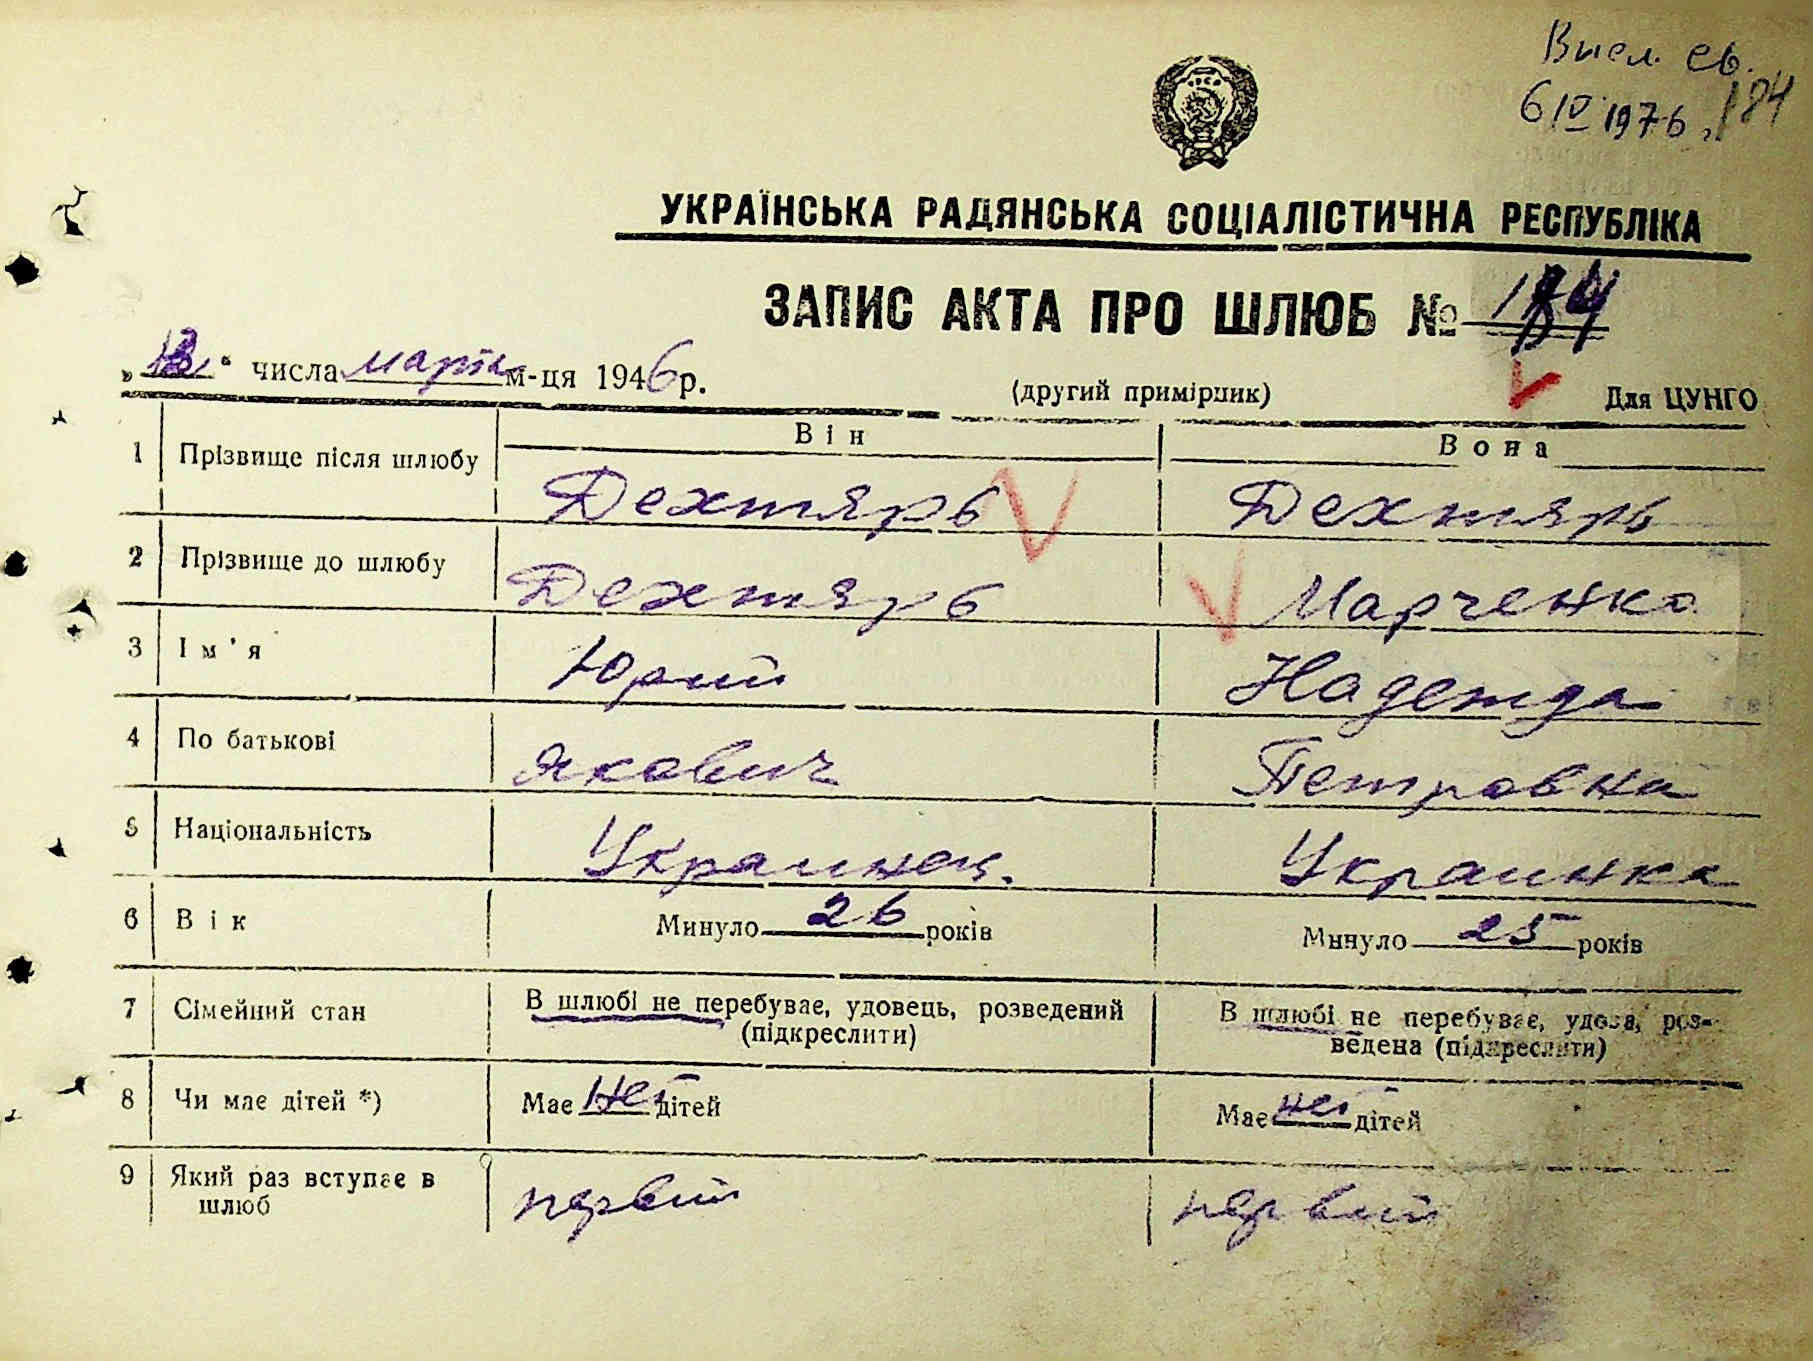 Высл. св.
6 IV 1976 г. 184
УКРАЇНСЬКА РАДЯНСЬКА СОЦІАЛІСТИЧНА РЕСПУБЛІКА
ЗАПИС АКТА ПРО ШЛЮБ № 184
числа марта м-ця 1946 р.
(другий примірник) Для ЦУНГО
Він Вона
1 Прізвище після шлюбу Дехтярь Дехтярь
2 Прізвище до шлюбу Дехтярь Марченко
3 Ім'я Юрий Надежда
4 По батьковіЯкович Петровна
5 Національність Украинец. Украинка
6 Вік Минуло 26 років Минуло 25 років
7 Сімейний стан В шлюбі не перебуває, удовець, розведений В шлюбі не перебуває, удова, роз-
(підкреслити) ведена (підкреслити)
8 Чи має дітей *) Має нет дітей Має нет дітей
9 Який раз вступає в первий первий
шлюб